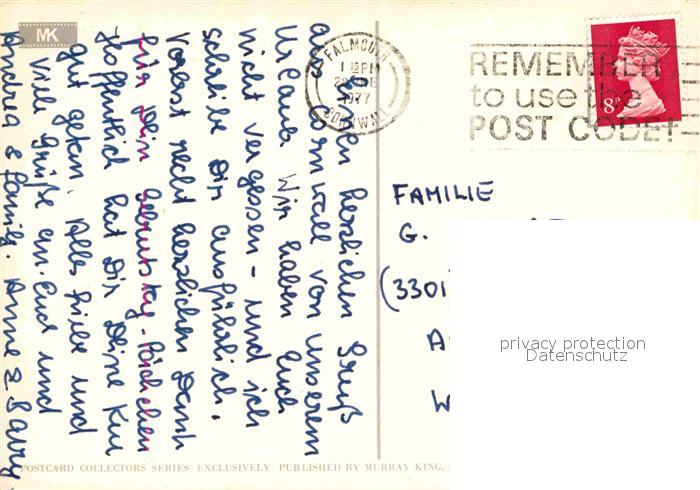 MK
FALMOUTH
1 15 PM
1977
CORNWALL
REMEMBER
to use the
POST CODE!
8P
Einen herzlichen Gruß
aus Cornwall von unserem
Urlaub. Wir haben Euch
nicht vergessen - und ich
schreibe Dir ausführlich.
Vorerst recht herzlichen Dank
für Dein Geburtstag-Päckchen
Hoffentlich hat Dir Deine Kur
gut getan. Alles Liebe und
viele Grüße an Euch und
Andrea & Family. Anne & Barry
FAMILIE
G.
(3301
A
W
privacy protection
Datenschutz
POSTCARD COLLECTORS SERIES EXCLUSIVELY PUBLISHED BY MURRAY KING,